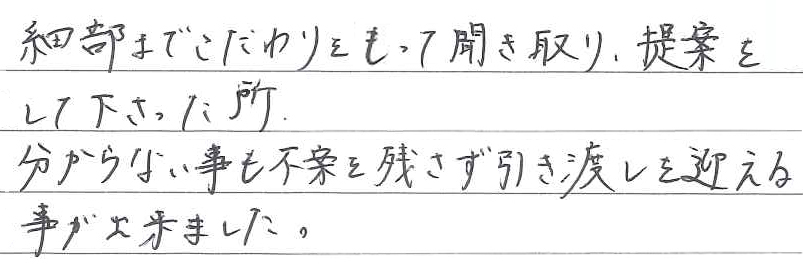 細部までこだわりをもって聞き取り、提案を
して下さった所、
分からない事も不安を残さず引き渡しを迎える
事が出来ました。